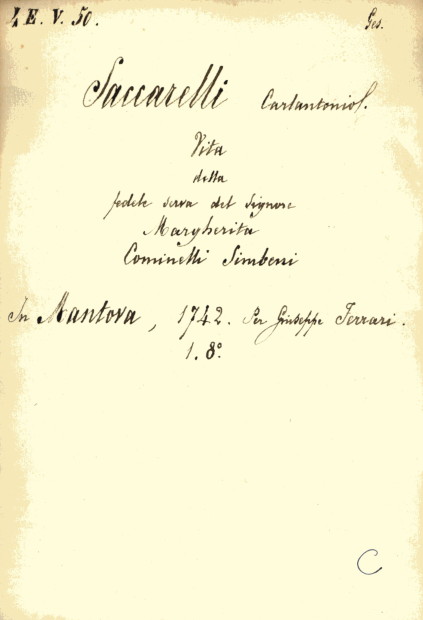 4 E. V. 50.
Ges.
Saccarelli Carlantonio
Vita
della
fedele serva del Signore
Margherita
Cominelli Simbeni
In Mantova, 1742. Per Giuseppe Ferrari.
1. 8º.
C